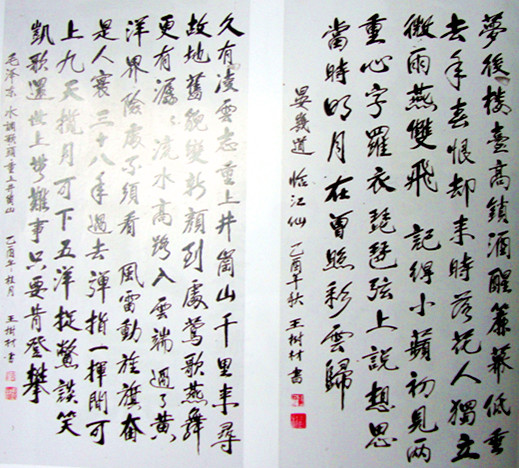 夢後樓臺高鎖酒醒簾幕低垂
去年春恨却来時落花人獨立
微雨燕雙飛 記得小蘋初見两
重心字羅衣琵琶弦上説想思
當時明月在曾照彩雲歸
晏幾道 临江仙 乙酉年秋 王樹材書
久有凌雲志重上井崗山千里来尋
故地舊貌變新顔到處鶯歌燕舞
更有潺々流水高路入雲端過了黄
洋界險處不須看 風雷動旌旗奮
是人寰三十八年過去彈指一揮間可
上九天攬月可下五洋捉鱉談笑
凱歌還世上無難事只要肯登攀
毛澤东 水調歌頭重上井崗山 乙酉年桂月 王樹材書